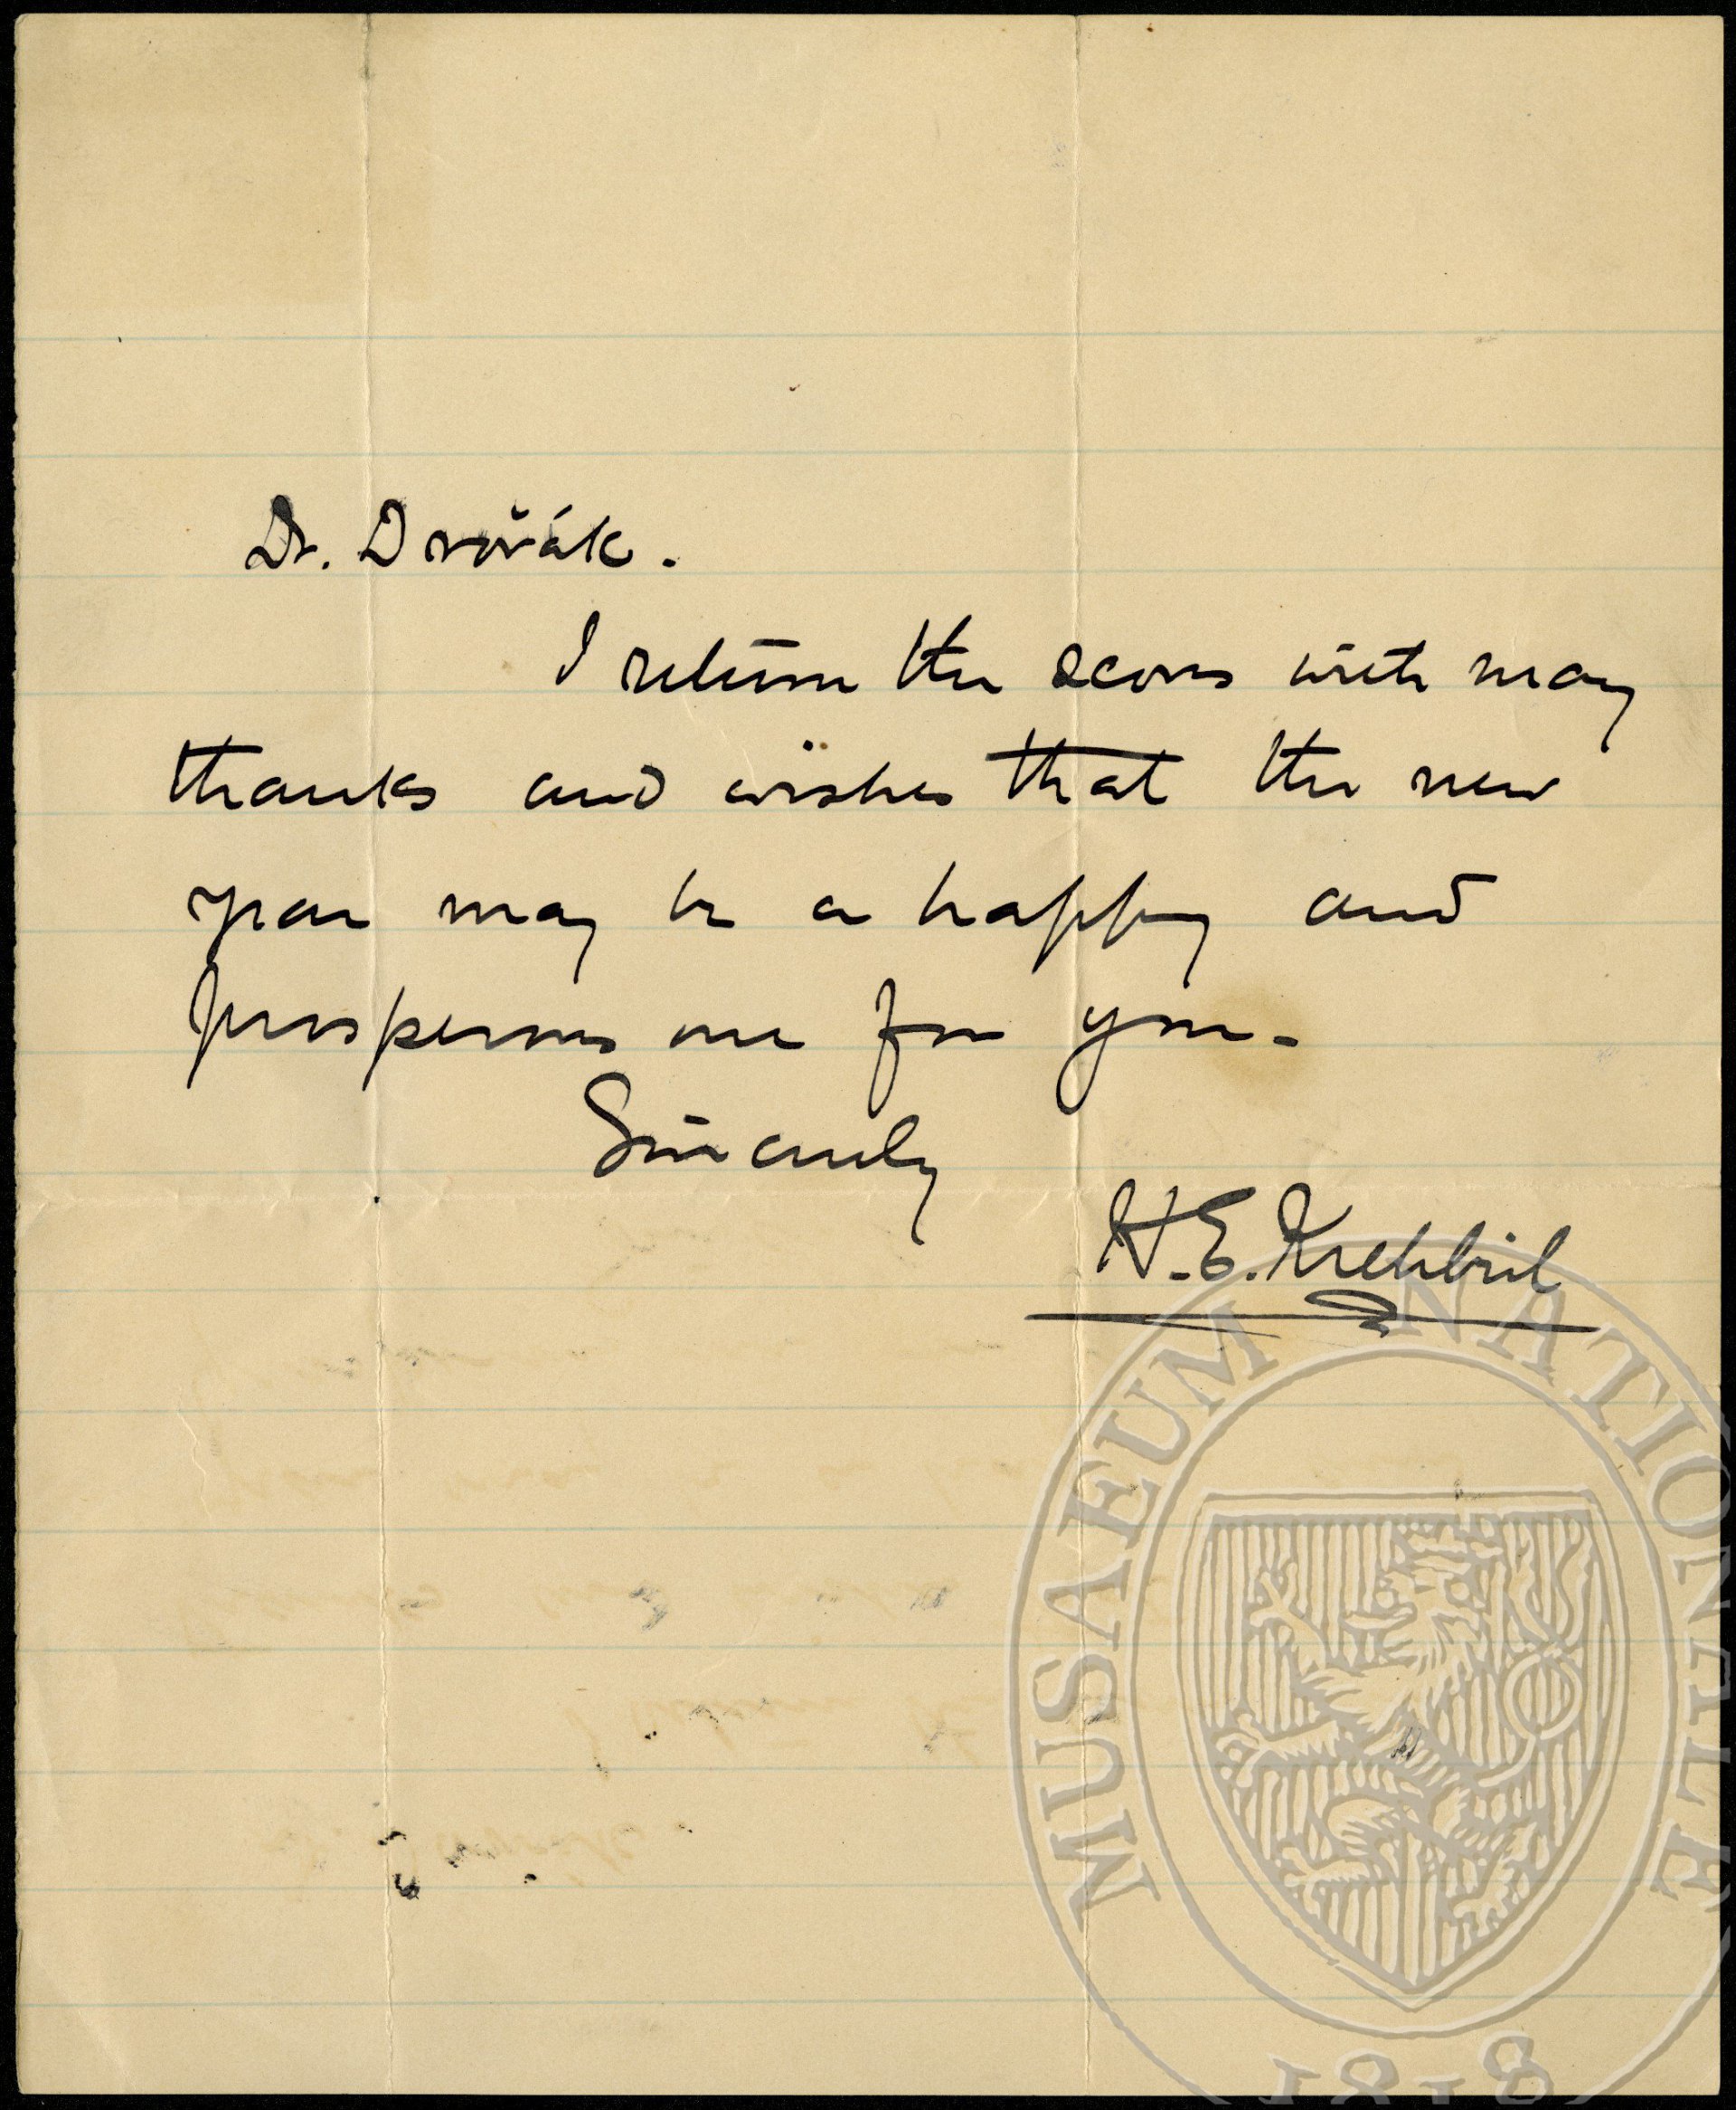 Dr. Dvořák.
I return the scores with many
thanks and wishes that the new
year may be a happy and
prosperous one for you.
Sincerely
H. E. Krehbiel
MUSAEUM NATIONALE
1818